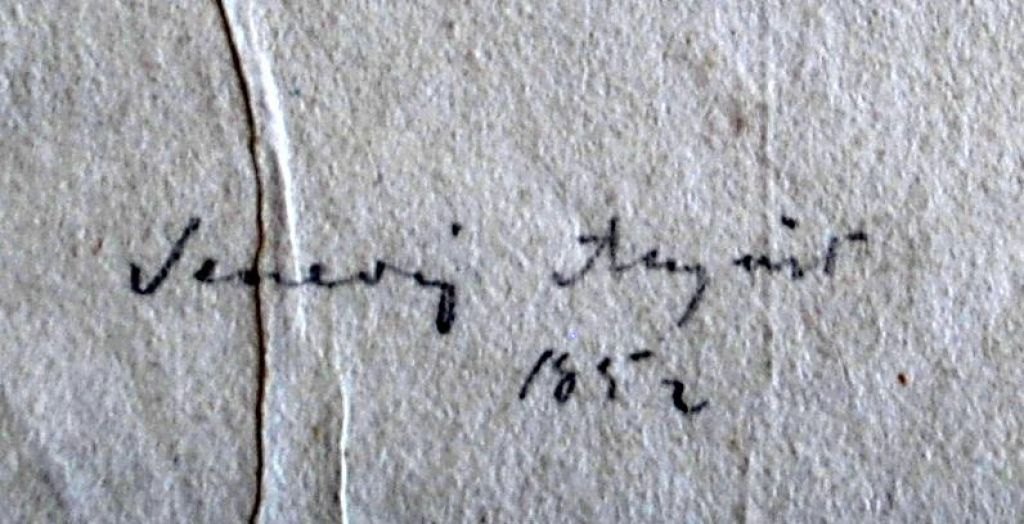 Venedig August
1852